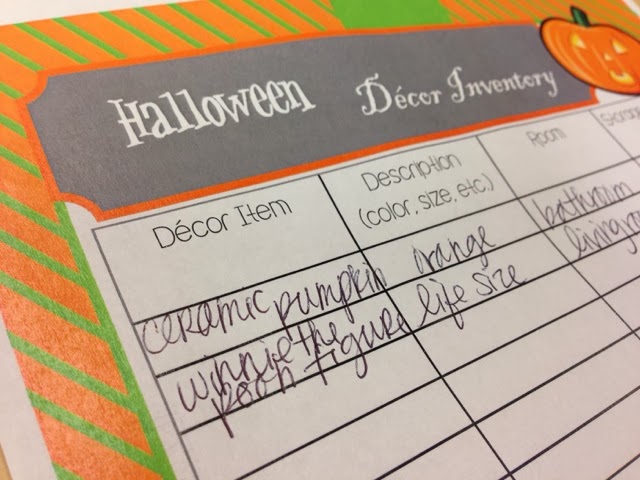 Halloween Décor Inventory
Décor Item Description Room
(color, size, etc.)
ceramic pumpkin orange bathroom
winnie the life size
pooh figure